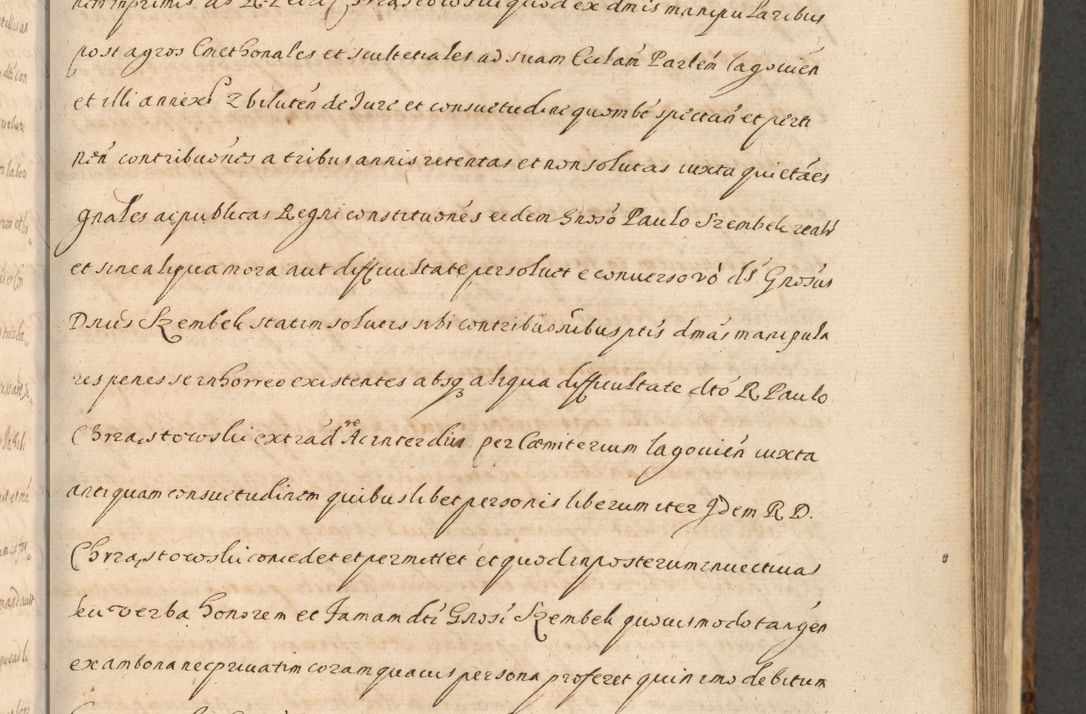 post agros Cmethonales et scultetiales ad suam Ecclam Parlem lagouien
et illi annexs Zbiluten de Jure et consuetudine quombt spectan et perti
nen contributiones a tribus annis retentas et non solutas iuxta quietaes
gnales aepublicas Regni constituones eidem Gnoso Paulo Szembek realr
et sine aliqua mora aut difficultate persoluet e conuerso vo ds Gnosus
Dnus Szembek statim solutis sibi contribuonibus ptis dmas manipula
res penes se in horreo existentes absq aliqua difficultate dto R Paulo
Chrząstowski extradre Ac interdiu per Cœmiterium lagouien iuxta
antiquam consuetudinem quibuslibet personis liberum iter Idem R D.
Chrząstowski concedet et permittet et quod inposterum inuectiuas
seu verba honorem et famam dti Gnosi Szembek quouismodo tangen
ex ambona nec priuatim coram quauis persona proferet quinimo debitum